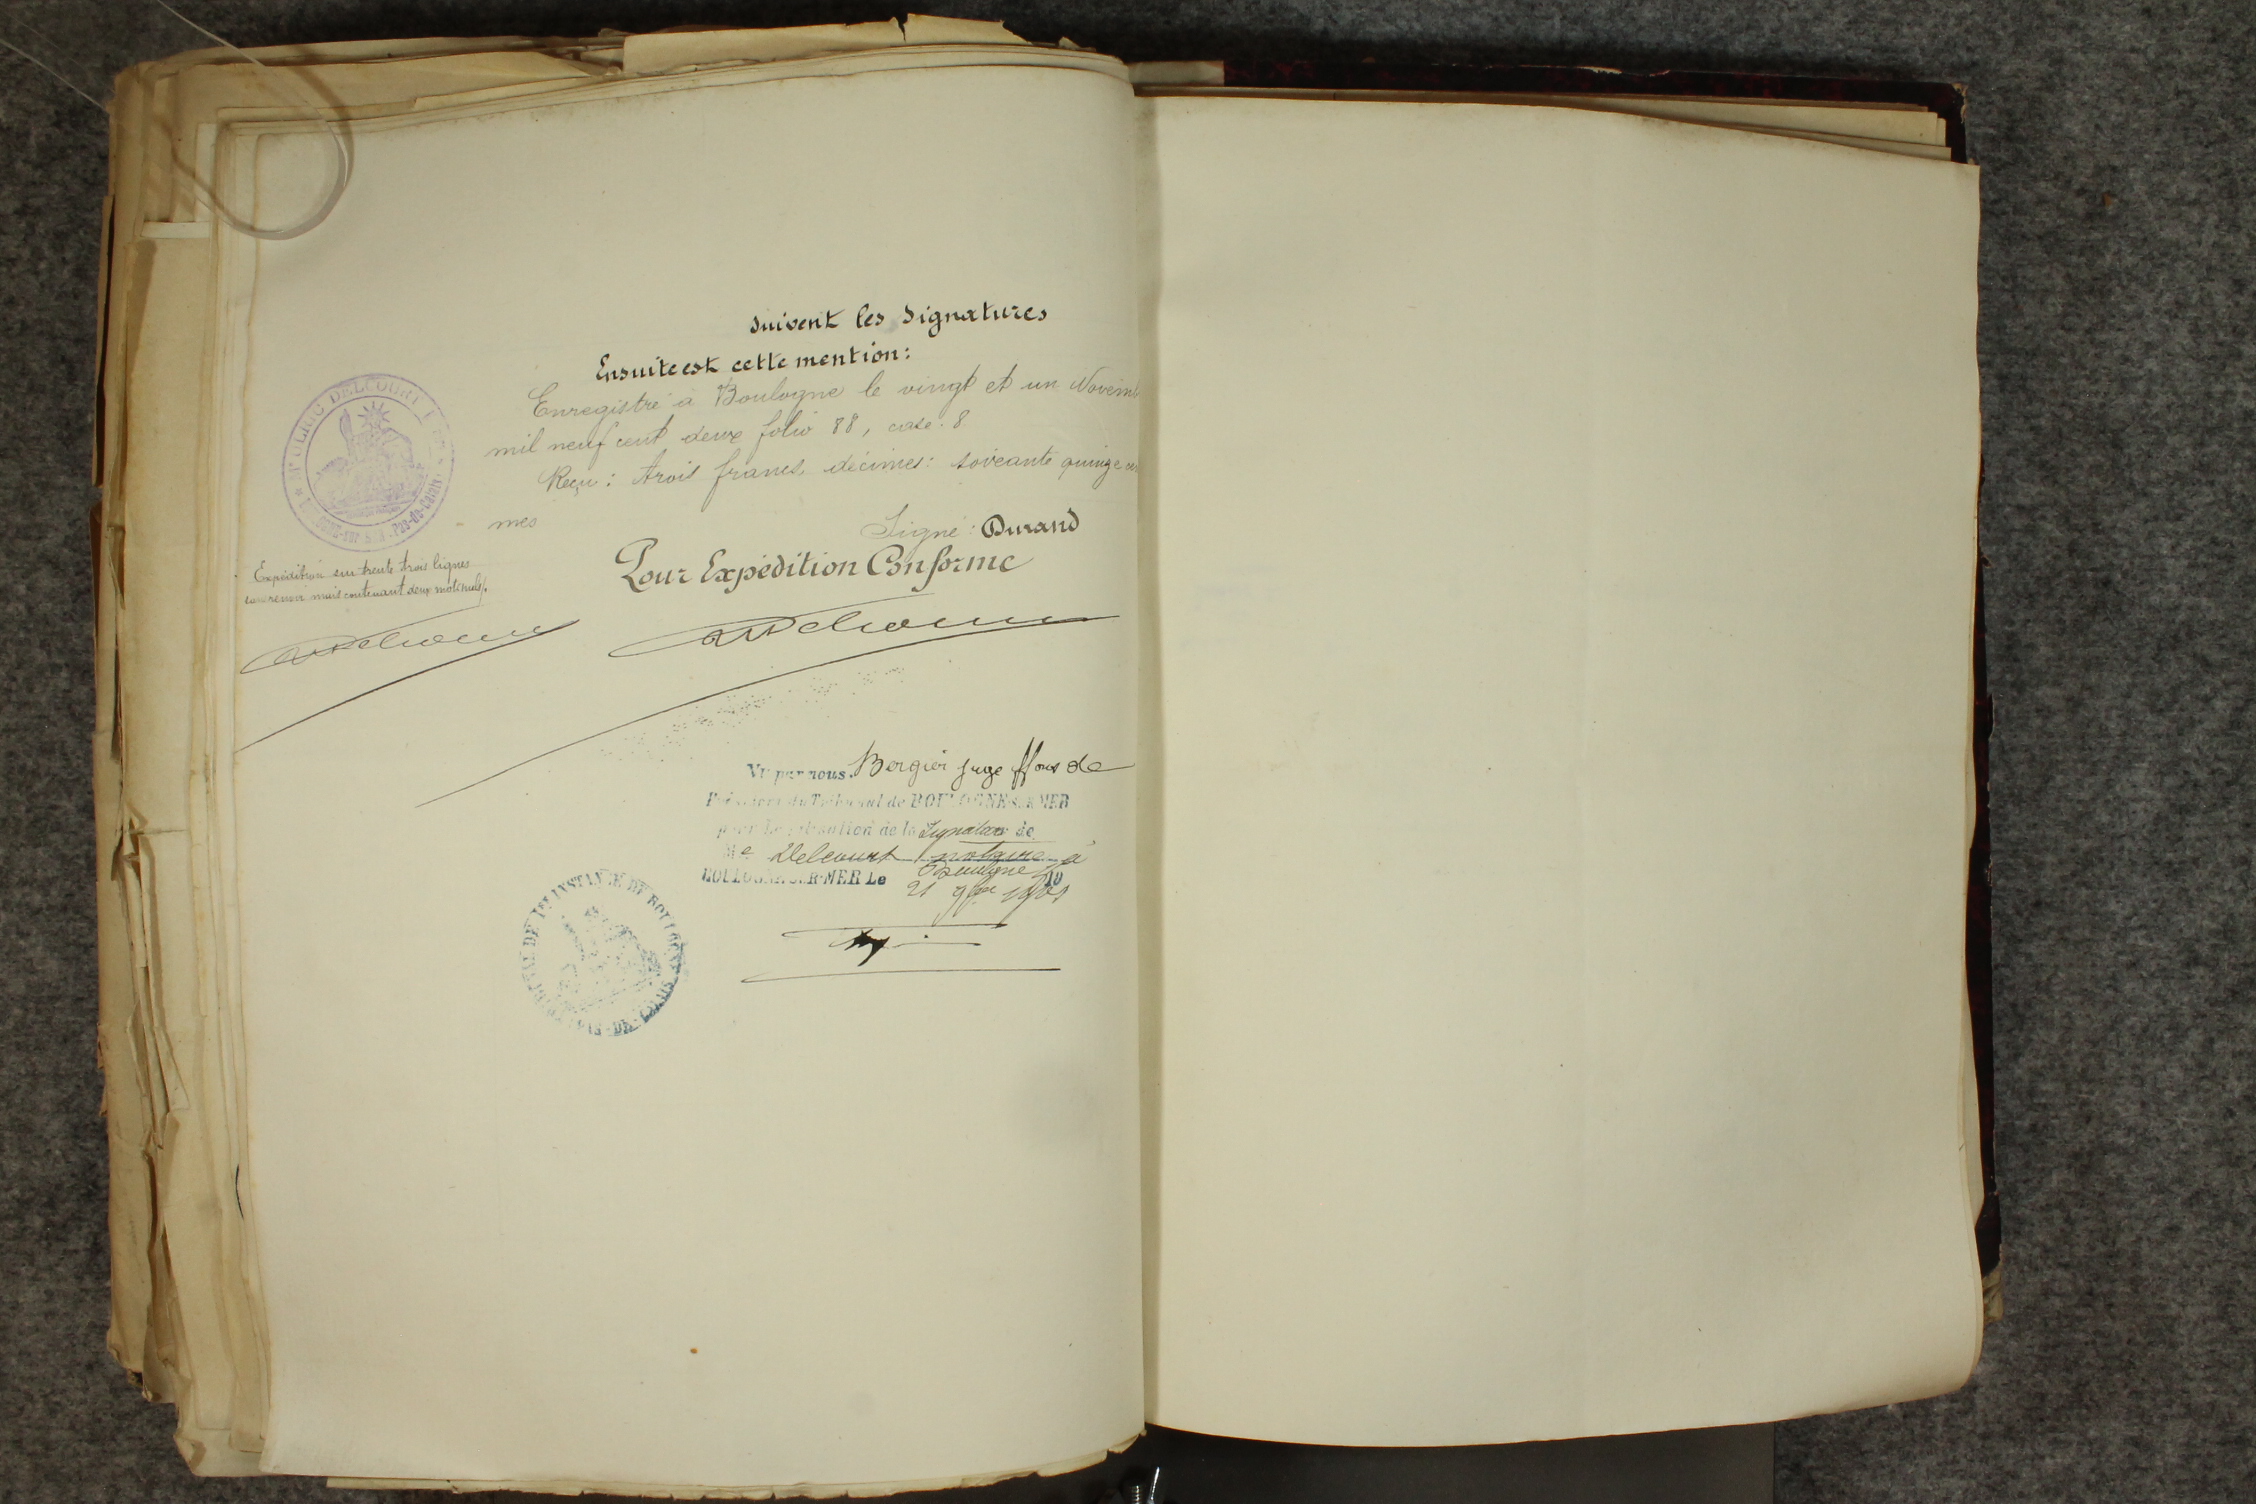 suivent les signatures
Ensuite est cette mention:
Enregistré à Boulogne le vingt et un Novemb
mil neuf cent deux folio 88, case. 8
Reçu: trois francs, décimes: soixante quinze cen
mes
Signé: Durand
Pour Expédition Conforme
Expédition sur trente trois lignes
sans renvoi mais contenant deux mots nuls.
Vu par nous. Bergier juge ffons de
Président du Tribunal de BOULOGNE-SUR-MER
pour Légalisation de la Signature de
Me Delcourt notaire à
Boulogne
BOULOGNE-SUR-MER Le 19
21 9bre
DELCOURT
Pas-de-Calais
INSTANCE DE BOULOGNE
PAS-DE-CALAIS